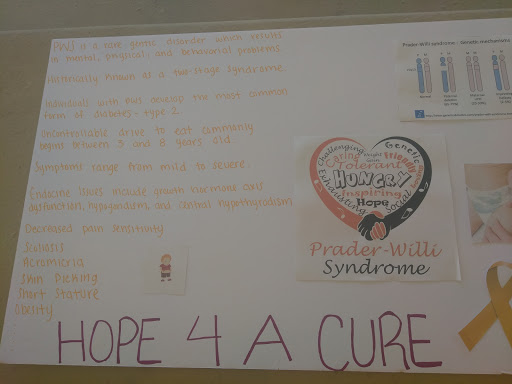 PWS is a rare genetic disorder which results
in mental, physical, and behavioral problems.
Historically known as a two-stage syndrome.
Individuals with PWS develop the most common
form of diabetes- type 2.
Uncontrollable drive to eat commonly
begins between 3 and 8 years old.
Symptoms range from mild to severe.
Endocrine issues include growth hormone axis
dysfunction, hypogonadism, and central hypothyroidism
Decreased pain sensitivity
Scoliosis
Acromicria
Skin Picking
Short Stature
Obesity
Prader-Willi syndrome - Genetic mechanisms
Normal
Challenging
Genetic
Caring
Friendly
Tolerant
HUNGRY
Inspiring
Exhausting
Hope
Social
Prader-Willi
Syndrome
HOPE 4 A CURE